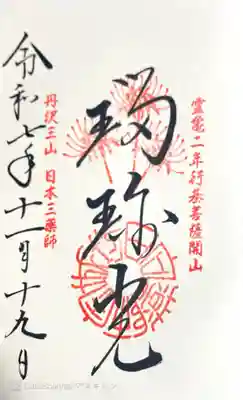 靈龜二年行基菩薩開山
瑠璃光
丹沢三山 日本三薬師
令和七年十一月十九日